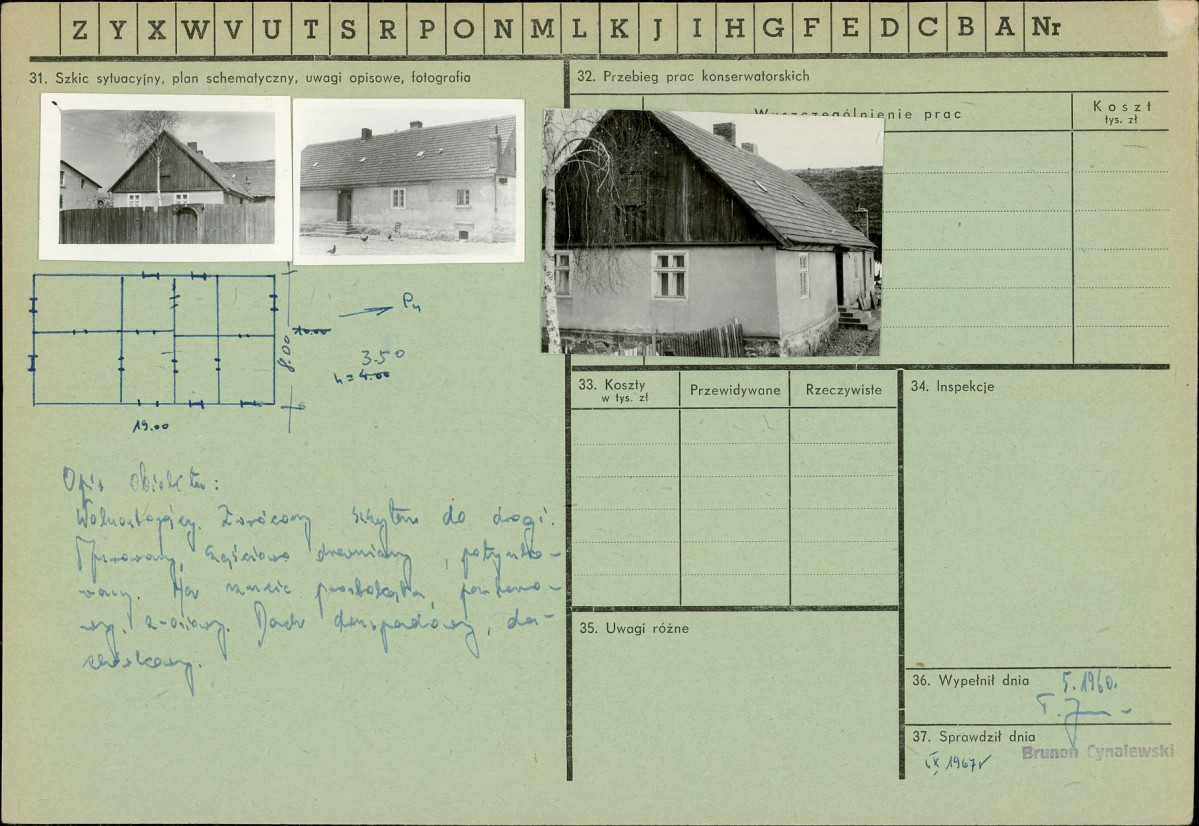 Z Y X W V U T S R P O N M L K J I H G F E D C B A Nr
31. Szkic sytuacyjny, plan schematyczny, uwagi opisowe, fotografia
Pn
10.00
8.00
3.50
h = 4.00
19.00
Opis obiektu:
Wolnostojący. Zwrócony szczytem do drogi.
Murowany, częściowo drewniany, potynko-
wany. Na rzucie prostokąta, partero-
wy, 2-osiowy. Dach dwuspadowy, da-
chówkowy.
32. Przebieg prac konserwatorskich
Wyszczególnienie prac
Koszt
tys. zł
33. Koszty
w tys. zł
Przewidywane
Rzeczywiste
34. Inspekcje
35. Uwagi różne
36. Wypełnił dnia
5.1960.
37. Sprawdził dnia
IX 1967
Brunon Cynalewski